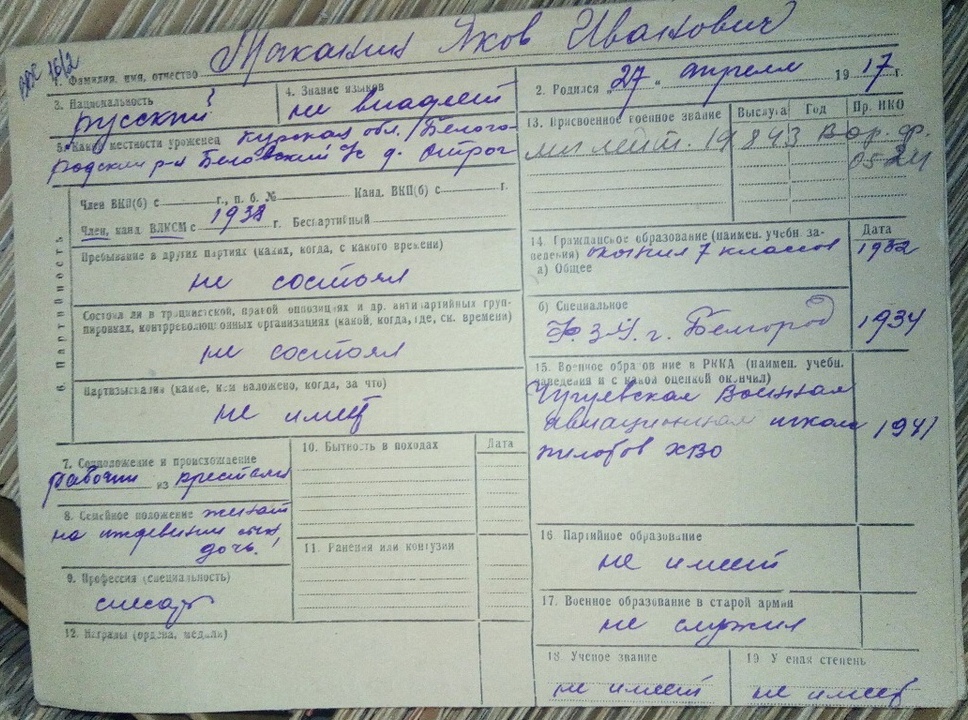 1. Фамилия, имя, отчество Маканин Яков Иванович
2. Родился „27“ апреля 1917 г.
3. Национальность русский
4. Знание языков не владеет
5. Какой местности уроженец Курская обл. / Белого-
родский р-н Беловский с/с д. Острог
6. Партийность
Член ВКП(б) с г., п. б. № Канд. ВКП(б) с г.
Член, канд. ВЛКСМ с 1938 г. Беспартийный
Пребывание в других партиях (каких, когда, с какого времени)
не состоял
Состоял ли в троцкистской, правой оппозициях и др. антипартийных груп-
пировках, контрреволюционных организациях (какой, когда, где, см. времени)
не состоял
Партвзыскания (какие, кем наложено, когда, за что)
не имеет
7. Соцположение и происхождение
рабочий из крестьян
8. Семейное положение женат
на иждевении
дочь.
9. Профессия (специальность)
слесарь
10. Бытность в походах Дата
11. Ранения или контузии
12. Награды (ордена, медали)
13. Присвоенное военное звание Выслуга Год Пр. НКО
мл лейт. 19 843 Вор. ф.
0524
14. Гражданское образование (наимен. учебн. за-
ведения) окончил 7 классов
а) Общее
Дата
1932
б) Специальное
ФЗУ. г. Белгород 1934
15. Военное образование в РККА (наимен. учебн.
заведения и с какой оценкой окончил)
Чугуевская военная
авиационная школа 1941
пилотов ХВО
16. Партийное образование
не имеет
17. Военное образование в старой армии
не служил
18. Ученое звание
не имеет
19. Ученая степень
не имеет